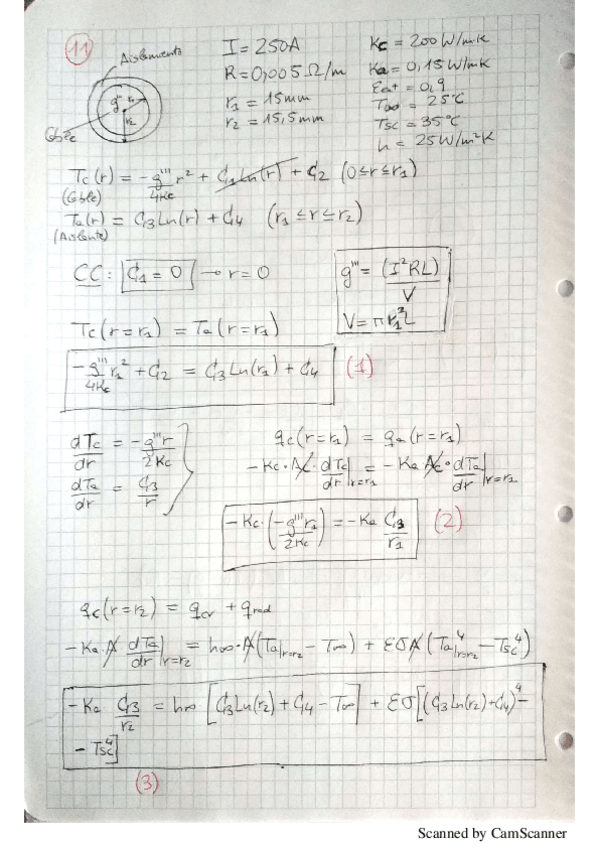 11
Aislamiento
Cable
g''' r₁
r₂
I = 250A
R = 0,005 Ω/m
r₁ = 15mm
r₂ = 15,5mm
Kc = 200 W/mK
Ka = 0,15 W/mK
Eext = 0,9
T∞ = 25°C
Tsc = 35°C
h = 25 W/m²K
Tc(r) = -g'''/4Kc r² + C₁Ln(r) + C₂ (0≤r≤r₁)
(Cable)
Ta(r) = C₃Ln(r) + C₄ (r₁≤r≤r₂)
(Aislante)
CC: C₁ = 0 → r=0
g''' = (I²RL)/V
V = πr₁²L
Tc(r=r₁) = Ta(r=r₁)
-g'''/4Kc r₁² + C₂ = C₃Ln(r₁) + C₄ (1)
dTc/dr = -g'''r/2Kc
dTa/dr = C₃/r
qc(r=r₁) = qa(r=r₁)
-Kc·Ac·dTc/dr|r=r₁ = -Ka Ac·dTa/dr|r=r₁
-Kc·(-g'''r₁/2Kc) = -Ka C₃/r₁ (2)
qc(r=r₂) = qcv + qrad
-Ka·A dTa/dr|r=r₂ = h∞·A(Ta|r=r₂ - T∞) + EσA(Ta⁴|r=r₂ - Tsc⁴)
-Ka C₃/r₂ = h∞ [C₃Ln(r₂) + C₄ - T∞] + Eσ[(C₃Ln(r₂)+C₄)⁴ -
- Tsc⁴]
(3)
Scanned by CamScanner